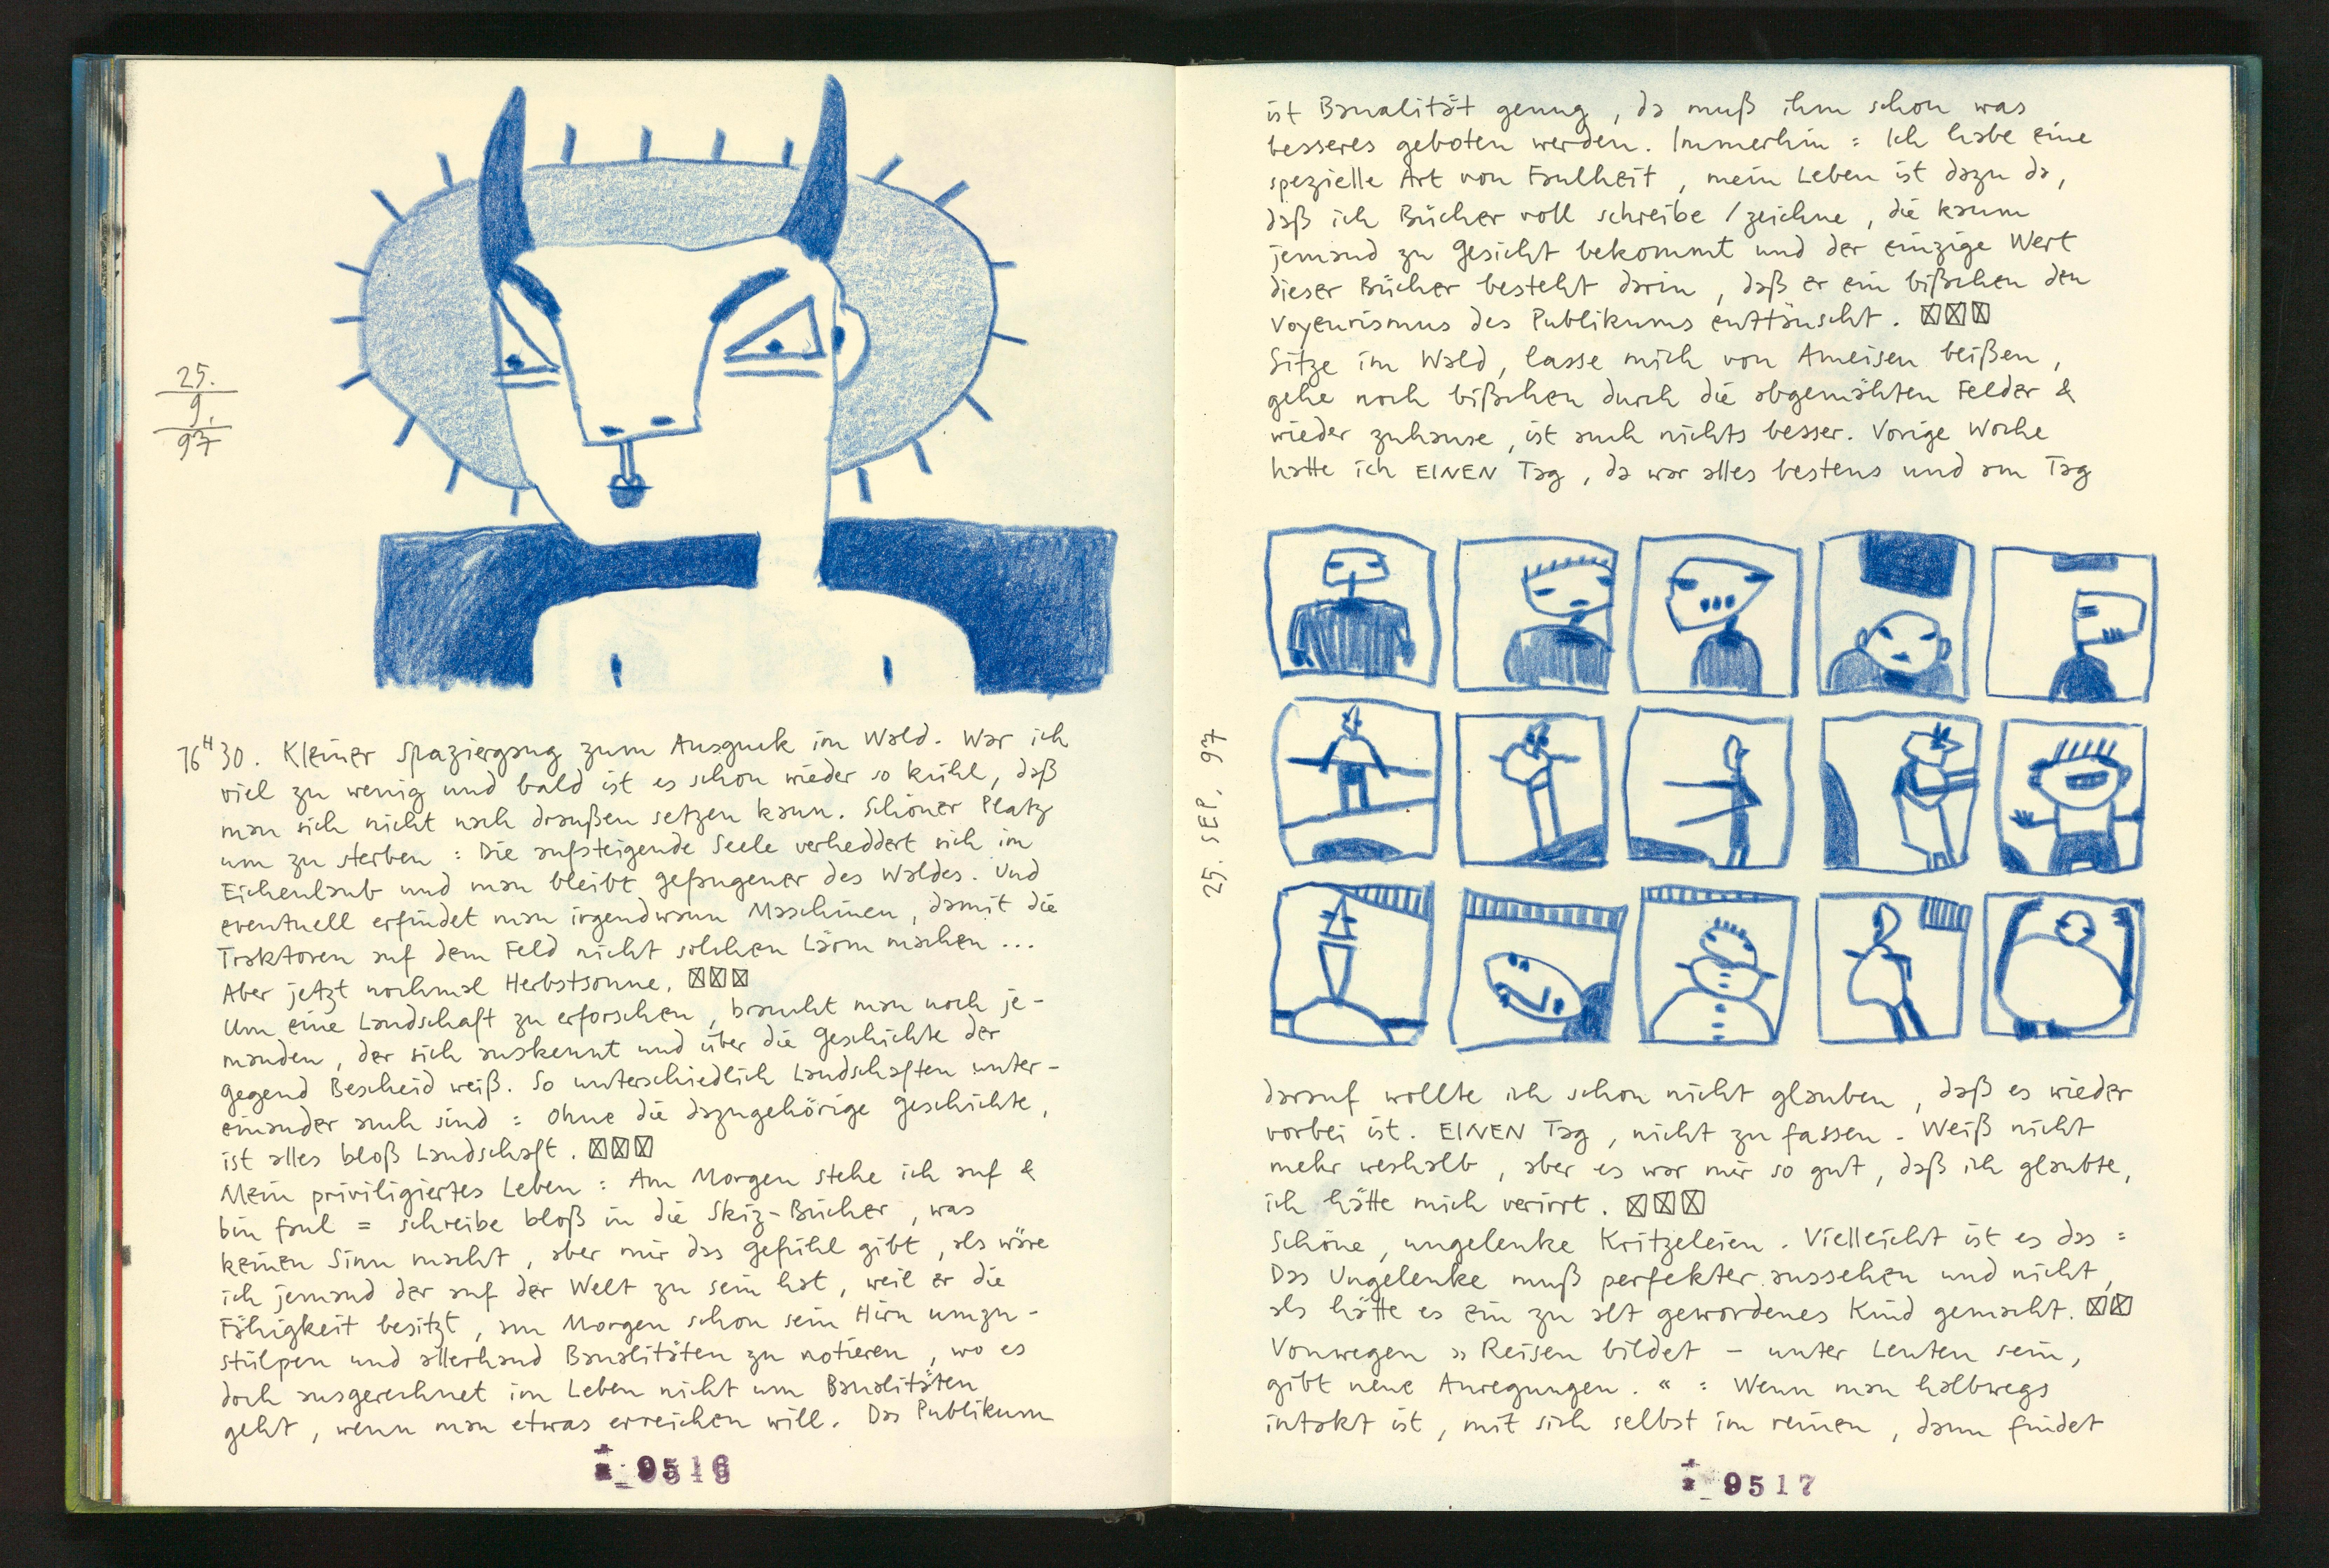 25.
9.
97
16H30. Kleiner Spaziergang zum Ausguck im Wald. War ich
viel zu wenig und bald ist es schon wieder so kühl, daß
man sich nicht nach draußen setzen kann. Schöner Platz
um zu sterben : Die aufsteigende Seele verheddert sich im
Eichenlaub und man bleibt gefangener des Waldes. Und
eventuell erfindet man irgendwann Maschinen, damit die
Traktoren auf dem Feld nicht solchen Lärm machen ...
Aber jetzt nochmal Herbstsonne. ☒☒☒
Um eine Landschaft zu erforschen, braucht man noch je-
manden, der sich auskennt und über die Geschichte der
Gegend Bescheid weiß. So unterschiedlich Landschaften unter-
einander auch sind : Ohne die dazugehörige Geschichte,
ist alles bloß Landschaft. ☒☒☒
Mein priviligiertes Leben : Am Morgen stehe ich auf &
bin faul = schreibe bloß in die Skiz-Bücher, was
keinen Sinn macht, aber mir das Gefühl gibt, als wäre
ich jemand der auf der Welt zu sein hat, weil er die
Fähigkeit besitzt, am Morgen schon sein Hirn umzu-
stülpen und allerhand Banalitäten zu notieren, wo es
doch ausgerechnet im Leben nicht um Banalitäten
geht, wenn man etwas erreichen will. Das Publikum
9516
ist Banalität genug, da muß ihm schon was
besseres geboten werden. Immerhin : Ich habe eine
spezielle Art von Faulheit, mein Leben ist dazu da,
daß ich Bücher voll schreibe / zeichne, die kaum
jemand zu Gesicht bekommt und der einzige Wert
dieser Bücher besteht darin, daß er ein bißchen den
Voyeurismus des Publikums enttäuscht. ☒☒☒
Sitze im Wald, lasse mich von Ameisen beißen,
gehe noch bißchen durch die abgemähten Felder &
wieder zuhause, ist auch nichts besser. Vorige Woche
hatte ich EINEN Tag, da war alles bestens und am Tag
25. SEP. 97
darauf wollte ich schon nicht glauben, daß es wieder
vorbei ist. EINEN Tag, nicht zu fassen. Weiß nicht
mehr weshalb, aber es war mir so gut, daß ich glaubte,
ich hätte mich verirrt. ☒☒☒
Schöne, ungelenke Kritzeleien. Vielleicht ist es das :
Das Ungelenke muß perfekter aussehen und nicht,
als hätte es ein zu alt gewordenes Kind gemacht. ☒☒
Vonwegen » Reisen bildet – unter Leuten sein,
gibt neue Anregungen. « : Wenn man halbwegs
intakt ist, mit sich selbst im reinen, dann findet
9517